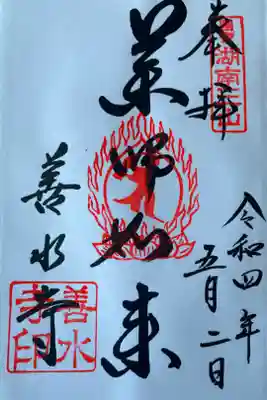 奉拝
湖南三山
令和四年
五月二日
薬師如来
善水寺
善水寺印